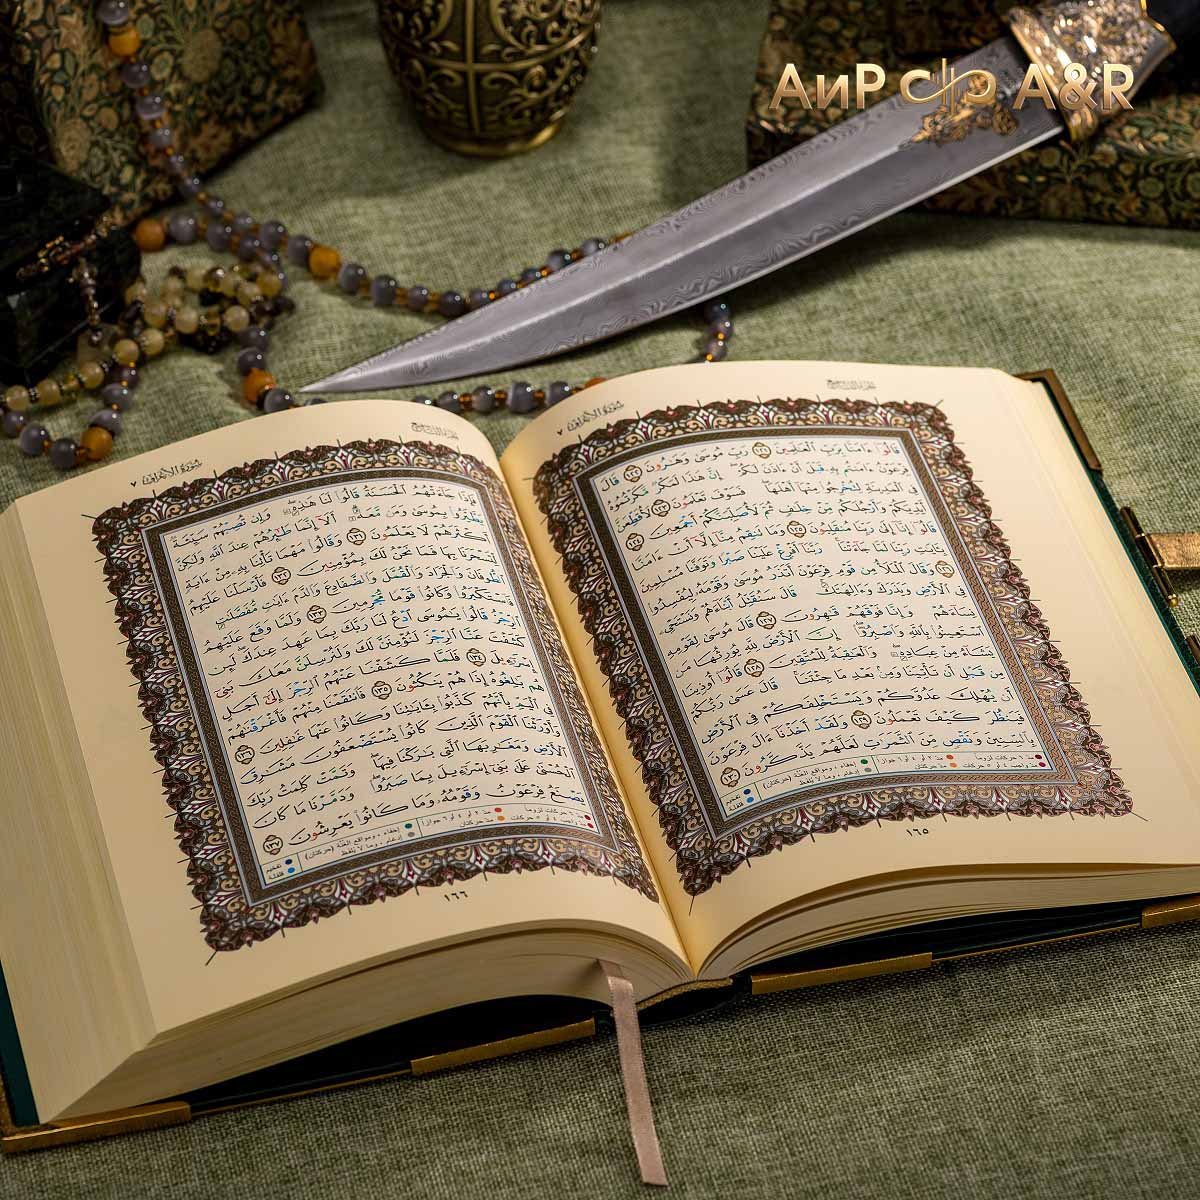 АиР A&R
سورة الأعراف ٧
قَالُوٓا۟ ءَامَنَّا بِرَبِّ ٱلْعَـٰلَمِينَ ١٢١ رَبِّ مُوسَىٰ وَهَـٰرُونَ ١٢٢ قَالَ
فِرْعَوْنُ ءَامَنتُم بِهِۦ قَبْلَ أَنْ ءَاذَنَ لَكُمْ إِنَّ هَـٰذَا لَمَكْرٌ مَّكَرْتُمُوهُ
فِى ٱلْمَدِينَةِ لِتُخْرِجُوا۟ مِنْهَآ أَهْلَهَا فَسَوْفَ تَعْلَمُونَ ١٢٣ لَأُقَطِّعَنَّ
أَيْدِيَكُمْ وَأَرْجُلَكُم مِّنْ خِلَـٰفٍ ثُمَّ لَأُصَلِّبَنَّكُمْ أَجْمَعِينَ ١٢٤
قَالُوٓا۟ إِنَّآ إِلَىٰ رَبِّنَا مُنقَلِبُونَ ١٢٥ وَمَا تَنقِمُ مِنَّآ إِلَّآ أَنْ ءَامَنَّا
بِـَٔايَـٰتِ رَبِّنَا لَمَّا جَآءَتْنَا رَبَّنَآ أَفْرِغْ عَلَيْنَا صَبْرًا وَتَوَفَّنَا مُسْلِمِينَ
١٢٦ وَقَالَ ٱلْمَلَأُ مِن قَوْمِ فِرْعَوْنَ أَتَذَرُ مُوسَىٰ وَقَوْمَهُۥ لِيُفْسِدُوا۟
فِى ٱلْأَرْضِ وَيَذَرَكَ وَءَالِهَتَكَ قَالَ سَنُقَتِّلُ أَبْنَآءَهُمْ وَنَسْتَحْىِۦ
نِسَآءَهُمْ وَإِنَّا فَوْقَهُمْ قَـٰهِرُونَ ١٢٧ قَالَ مُوسَىٰ لِقَوْمِهِ
ٱسْتَعِينُوا۟ بِٱللَّهِ وَٱصْبِرُوٓا۟ إِنَّ ٱلْأَرْضَ لِلَّهِ يُورِثُهَا مَن
يَشَآءُ مِنْ عِبَادِهِۦ وَٱلْعَـٰقِبَةُ لِلْمُتَّقِينَ ١٢٨ قَالُوٓا۟ أُوذِينَا
مِن قَبْلِ أَن تَأْتِيَنَا وَمِنۢ بَعْدِ مَا جِئْتَنَا قَالَ عَسَىٰ رَبُّكُمْ
أَن يُهْلِكَ عَدُوَّكُمْ وَيَسْتَخْلِفَكُمْ فِى ٱلْأَرْضِ
فَيَنظُرَ كَيْفَ تَعْمَلُونَ ١٢٩ وَلَقَدْ أَخَذْنَآ ءَالَ فِرْعَوْنَ
بِٱلسِّنِينَ وَنَقْصٍ مِّنَ ٱلثَّمَرَٰتِ لَعَلَّهُمْ يَذَّكَّرُونَ ١٣٠
١٦٥
سورة الأعراف ٧
فَإِذَا جَآءَتْهُمُ ٱلْحَسَنَةُ قَالُوا۟ لَنَا هَـٰذِهِۦ وَإِن تُصِبْهُمْ سَيِّئَةٌ
يَطَّيَّرُوا۟ بِمُوسَىٰ وَمَن مَّعَهُۥٓ أَلَآ إِنَّمَا طَـٰٓئِرُهُمْ عِندَ ٱللَّهِ وَلَـٰكِنَّ
أَكْثَرَهُمْ لَا يَعْلَمُونَ ١٣١ وَقَالُوا۟ مَهْمَا تَأْتِنَا بِهِۦ مِنْ ءَايَةٍ
لِّتَسْحَرَنَا بِهَا فَمَا نَحْنُ لَكَ بِمُؤْمِنِينَ ١٣٢ فَأَرْسَلْنَا عَلَيْهِمُ
ٱلطُّوفَانَ وَٱلْجَرَادَ وَٱلْقُمَّلَ وَٱلضَّفَادِعَ وَٱلدَّمَ ءَايَـٰتٍ مُّفَصَّلَـٰتٍ
فَٱسْتَكْبَرُوا۟ وَكَانُوا۟ قَوْمًا مُّجْرِمِينَ ١٣٣ وَلَمَّا وَقَعَ عَلَيْهِمُ
ٱلرِّجْزُ قَالُوا۟ يَـٰمُوسَى ٱدْعُ لَنَا رَبَّكَ بِمَا عَهِدَ عِندَكَ لَئِن
كَشَفْتَ عَنَّا ٱلرِّجْزَ لَنُؤْمِنَنَّ لَكَ وَلَنُرْسِلَنَّ مَعَكَ بَنِىٓ
إِسْرَٰٓءِيلَ ١٣٤ فَلَمَّا كَشَفْنَا عَنْهُمُ ٱلرِّجْزَ إِلَىٰٓ أَجَلٍ
هُم بَـٰلِغُوهُ إِذَا هُمْ يَنكُثُونَ ١٣٥ فَٱنتَقَمْنَا مِنْهُمْ فَأَغْرَقْنَـٰهُمْ
فِى ٱلْيَمِّ بِأَنَّهُمْ كَذَّبُوا۟ بِـَٔايَـٰتِنَا وَكَانُوا۟ عَنْهَا غَـٰفِلِينَ ١٣٦
وَأَوْرَثْنَا ٱلْقَوْمَ ٱلَّذِينَ كَانُوا۟ يُسْتَضْعَفُونَ مَشَـٰرِقَ
ٱلْأَرْضِ وَمَغَـٰرِبَهَا ٱلَّتِى بَـٰرَكْنَا فِيهَا وَتَمَّتْ كَلِمَتُ رَبِّكَ
ٱلْحُسْنَىٰ عَلَىٰ بَنِىٓ إِسْرَٰٓءِيلَ بِمَا صَبَرُوا۟ وَدَمَّرْنَا مَا كَانَ
يَصْنَعُ فِرْعَوْنُ وَقَوْمُهُۥ وَمَا كَانُوا۟ يَعْرِشُونَ ١٣٧
١٦٦